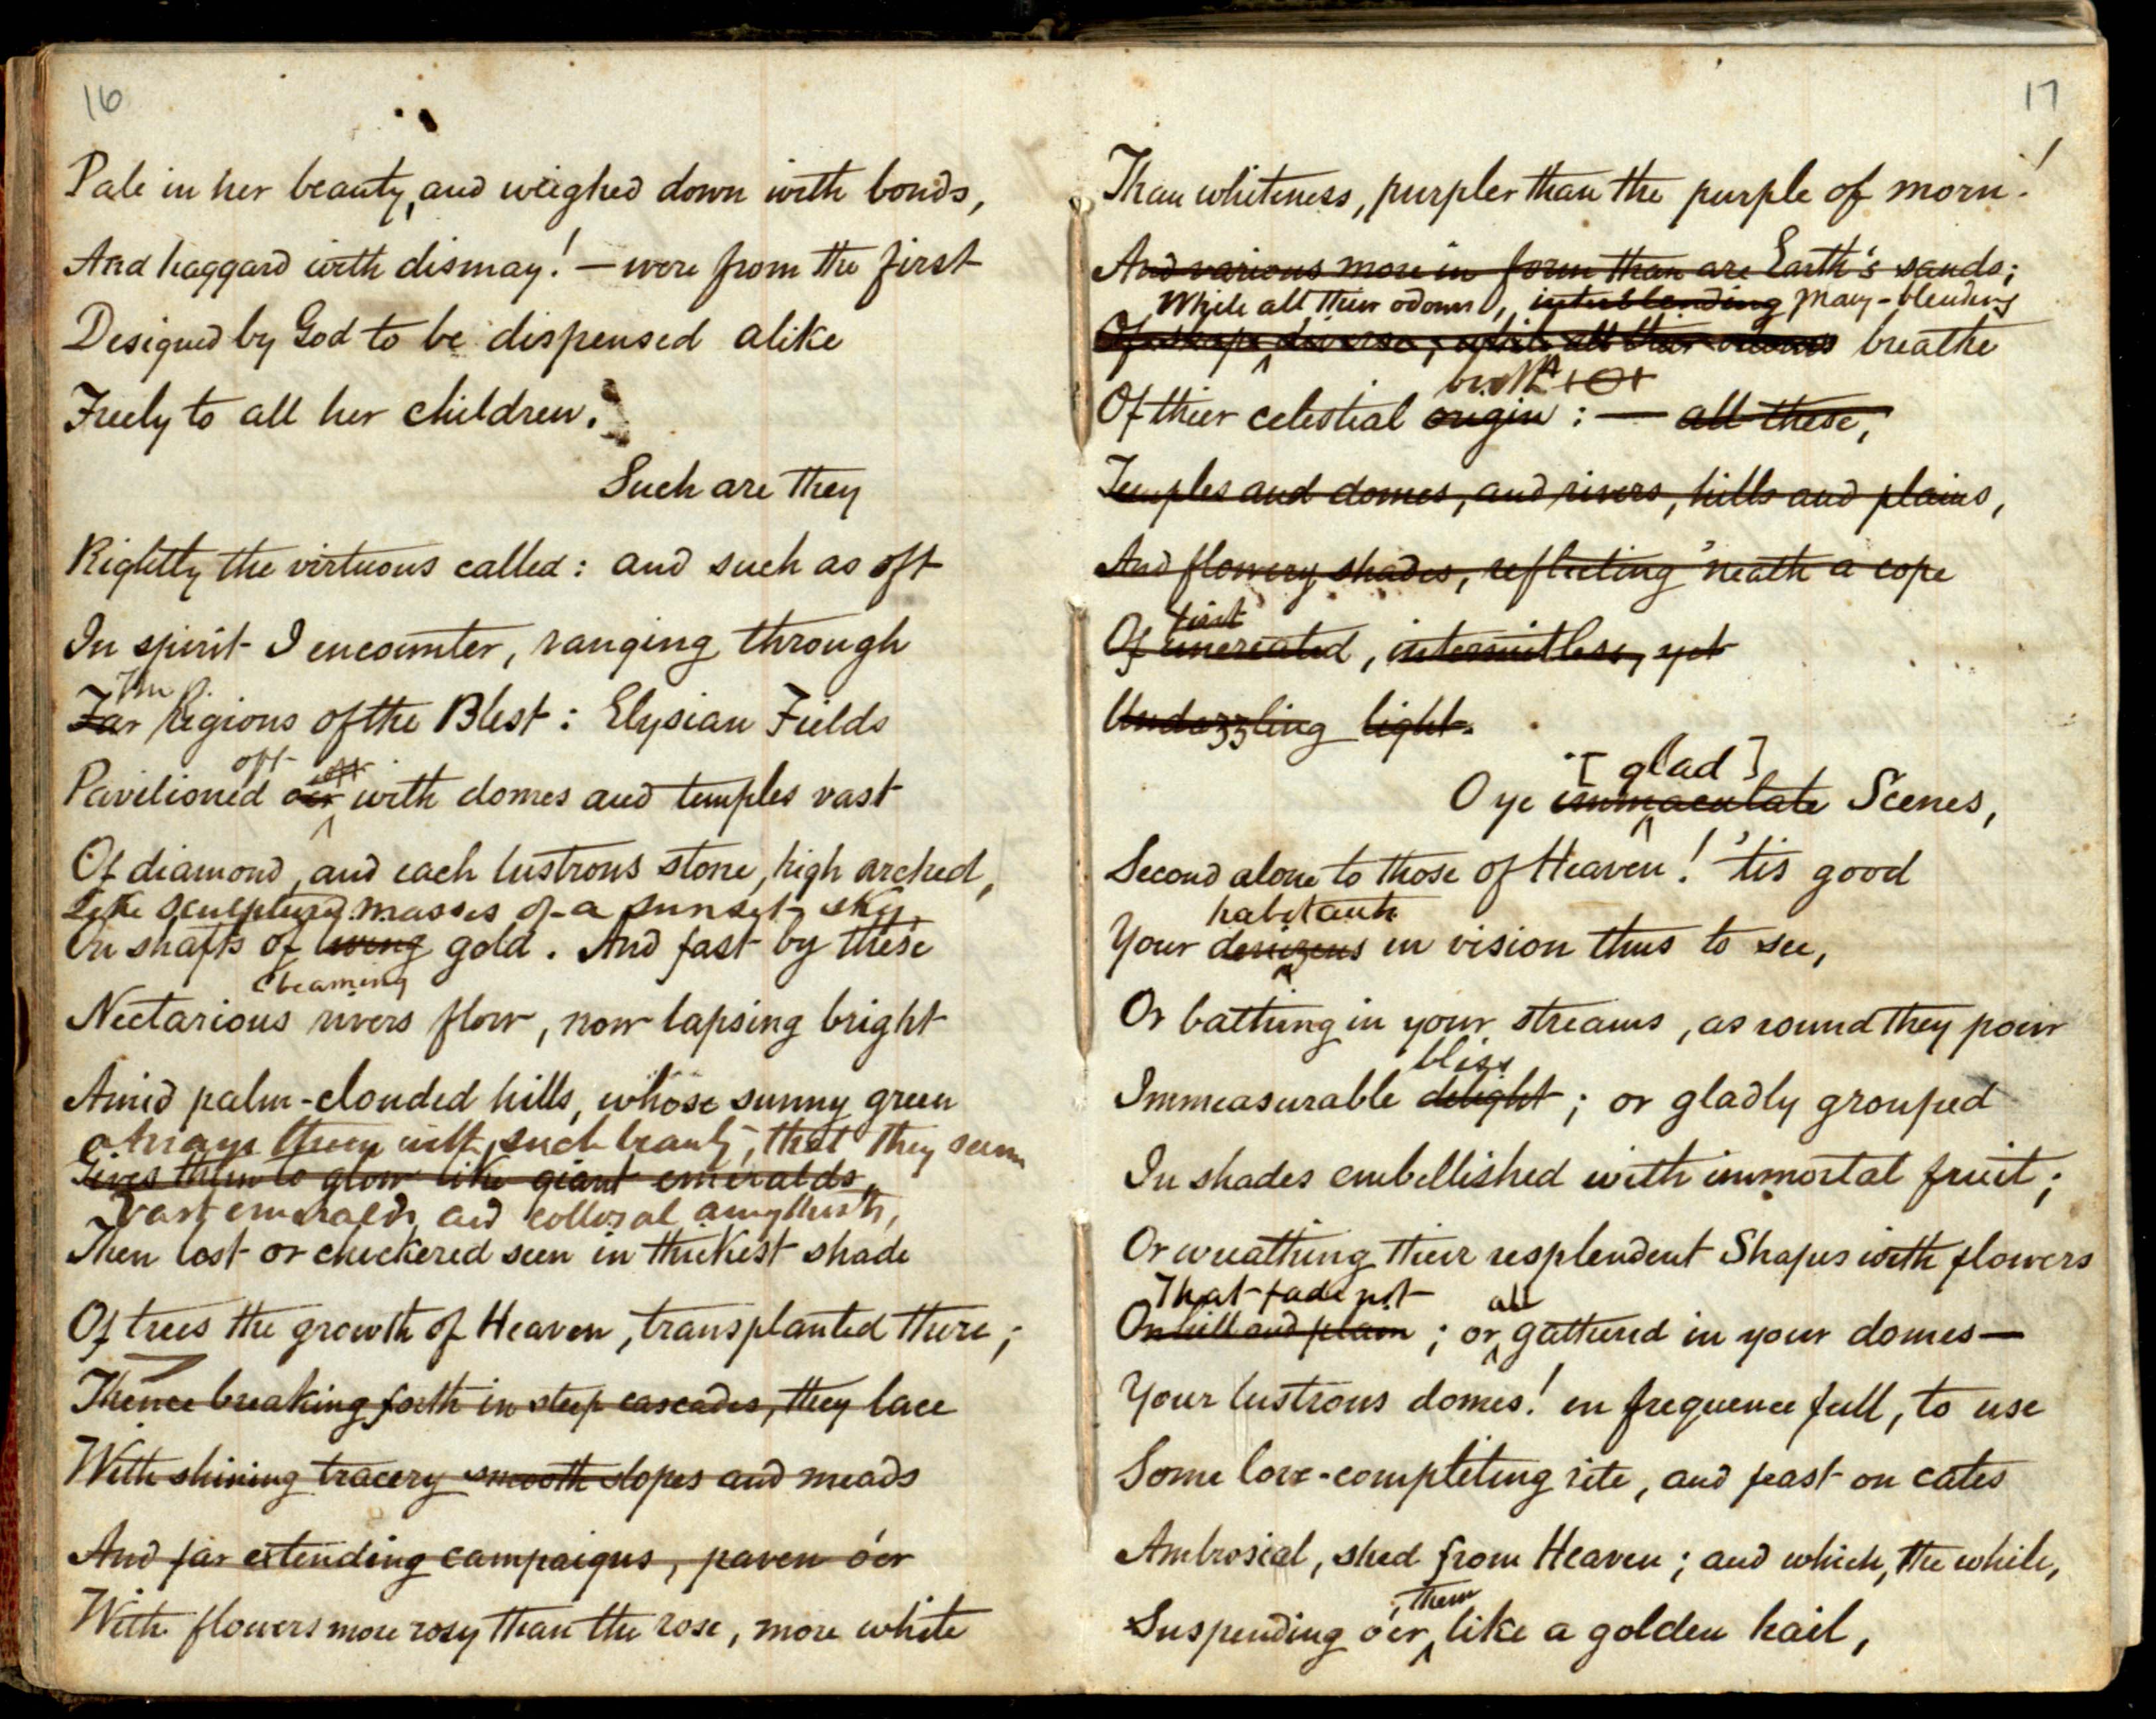 16
Pale in her beauty, and weighed down with bonds,
And haggard with dismay! — were from the first
Designed by God to be dispensed alike
Freely to all her children.
Such are they
Rightly the virtuous called: and such as oft
In spirit I encounter, ranging through
The
Far Regions of the Blest: Elysian Fields
oft oft
Pavilioned o'er with domes and temples vast
Of diamond, and each lustrous stone, high arched,
Like sculptured masses of a sunset sky,
On shafts of living gold. And fast by these
beaming
Nectarious rivers flow, now lapsing bright
Amid palm-clouded hills, whose sunny green
Arrays them with such beauty, that they seem
Gives them to glow like giant emeralds,
Vast emeralds and collosal amythests,
Then lost or checkered seen in thickest shade
Of trees the growth of Heaven, transplanted there;
Thence breaking forth in steep cascades, they lace
With shining tracery smooth slopes and meads
And far extending campaigns, paven o'er
With flowers more rosy than the rose, more white
17
Than whiteness, purpler than the purple of morn!
And various more in form than are Earth's sands;
While all their odours, interblending many-blending
Of shape diverse; while all their odours breathe
birth
Of thier celestial origin: — all these,
Temples and domes, and rivers, hills and plains,
And flowery shades, reflecting 'neath a cope
first
Of uncreated, intermitless, yet
Undazzling light.
[glad]
O ye immaculate Scenes,
Second alone to those of Heaven! 'tis good
habitants
Your denizens in vision thus to see,
Or bathing in your streams, as round they pour
bliss
Immeasurable delight; or gladly grouped
In shades embellished with immortal fruit;
Or wreathing their resplendent Shapes with flowers
That fade not all
On hill and plain; or gathered in your domes—
Your lustrous domes! in frequence full, to use
Some love-completing rite, and feast on cates
Ambrosial, shed from Heaven; and which, the while,
them
Suspending o'er like a golden hail,